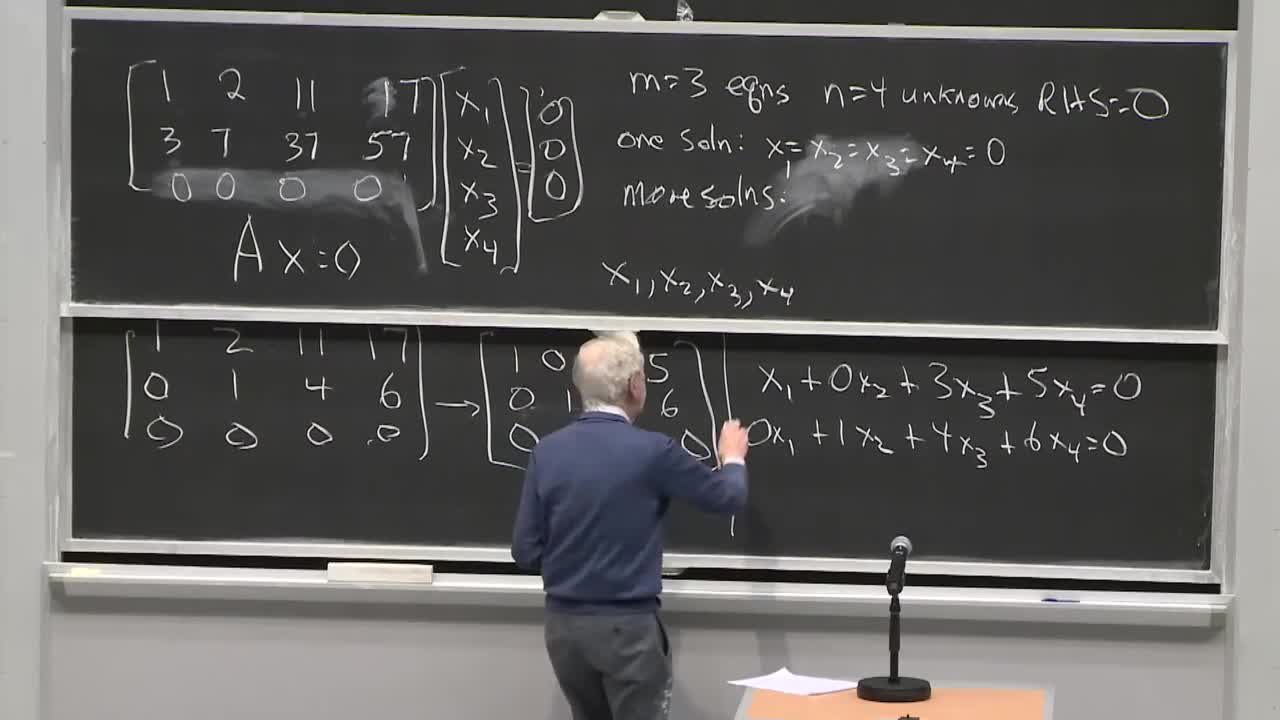 [1 2 11 17] [x1] = [0]
[3 7 37 57] [x2] [0]
[0 0 0 0] [x3] [0]
[x4]
Ax=0
m=3 eqns n=4 unknowns RHS=0
one soln: x1=x2=x3=x4=0
More solns:
x1, x2, x3, x4
[1 2 11 17] → [1 0 5]
[0 1 4 6] [0 1 6]
[0 0 0 0] [0 0]
x1+0x2+3x3+5x4=0
0x1+1x2+4x3+6x4=0